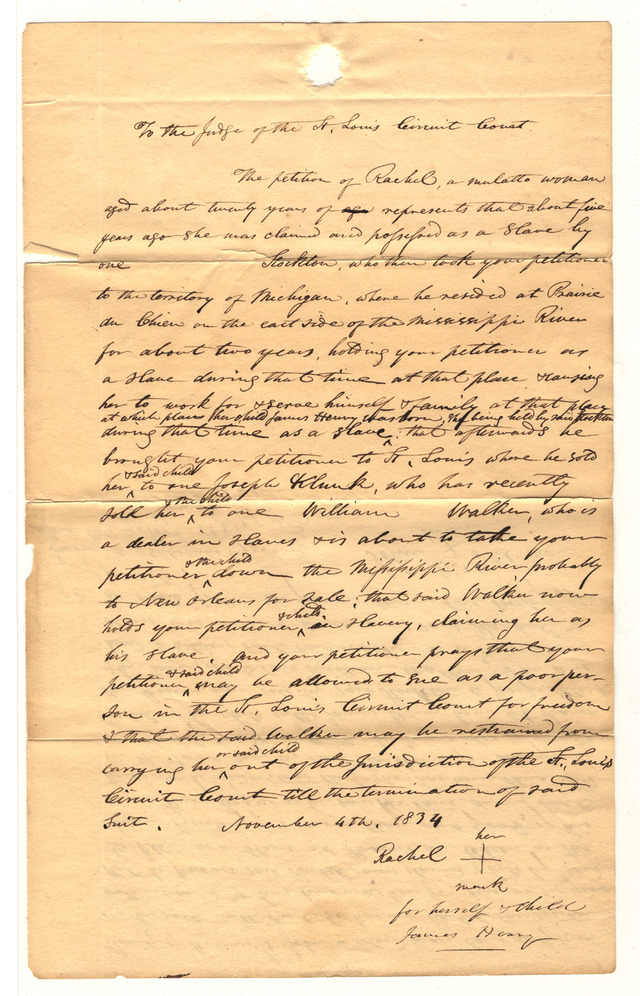 To the Judge of the St. Louis Circuit Court
The petition of Rachel, a mulatto woman
aged about twenty years of age represents that about five
years ago she was claimed and possessed as a Slave by
one Stockton, who then took your petitioner
to the territory of Michigan, where he resided at Prairie
du Chien on the east side of the Mississippi River
for about two years, holding your petitioner as
a slave during that time at that place, & causing
her to work for & serve himself & family at that place
at which place her child James Henry was born, & being held by said Stockton
during that time as a slave, that afterwards he
brought your petitioner to St. Louis where he sold
& said child
her to one Joseph Klunk, who has recently
& the child
sold her to one William Walker, who is
a dealer in slaves & is about to take your
& the child
petitioner down the Mississippi River probably
to New Orleans for sale, that said Walker now
& child
holds your petitioner in slavery, claiming her as
his slave, and your petitioner prays that your
& said child
petitioner may be allowed to sue as a poor per-
son in the St. Louis Circuit Court for freedom
& that the said Walker may be restrained from
or said child
carrying her out of the Jurisdiction of the St. Louis
Circuit Court till the termination of said
Suit. November 4th. 1834
her
Rachel +
mark
for herself & child
James Henry